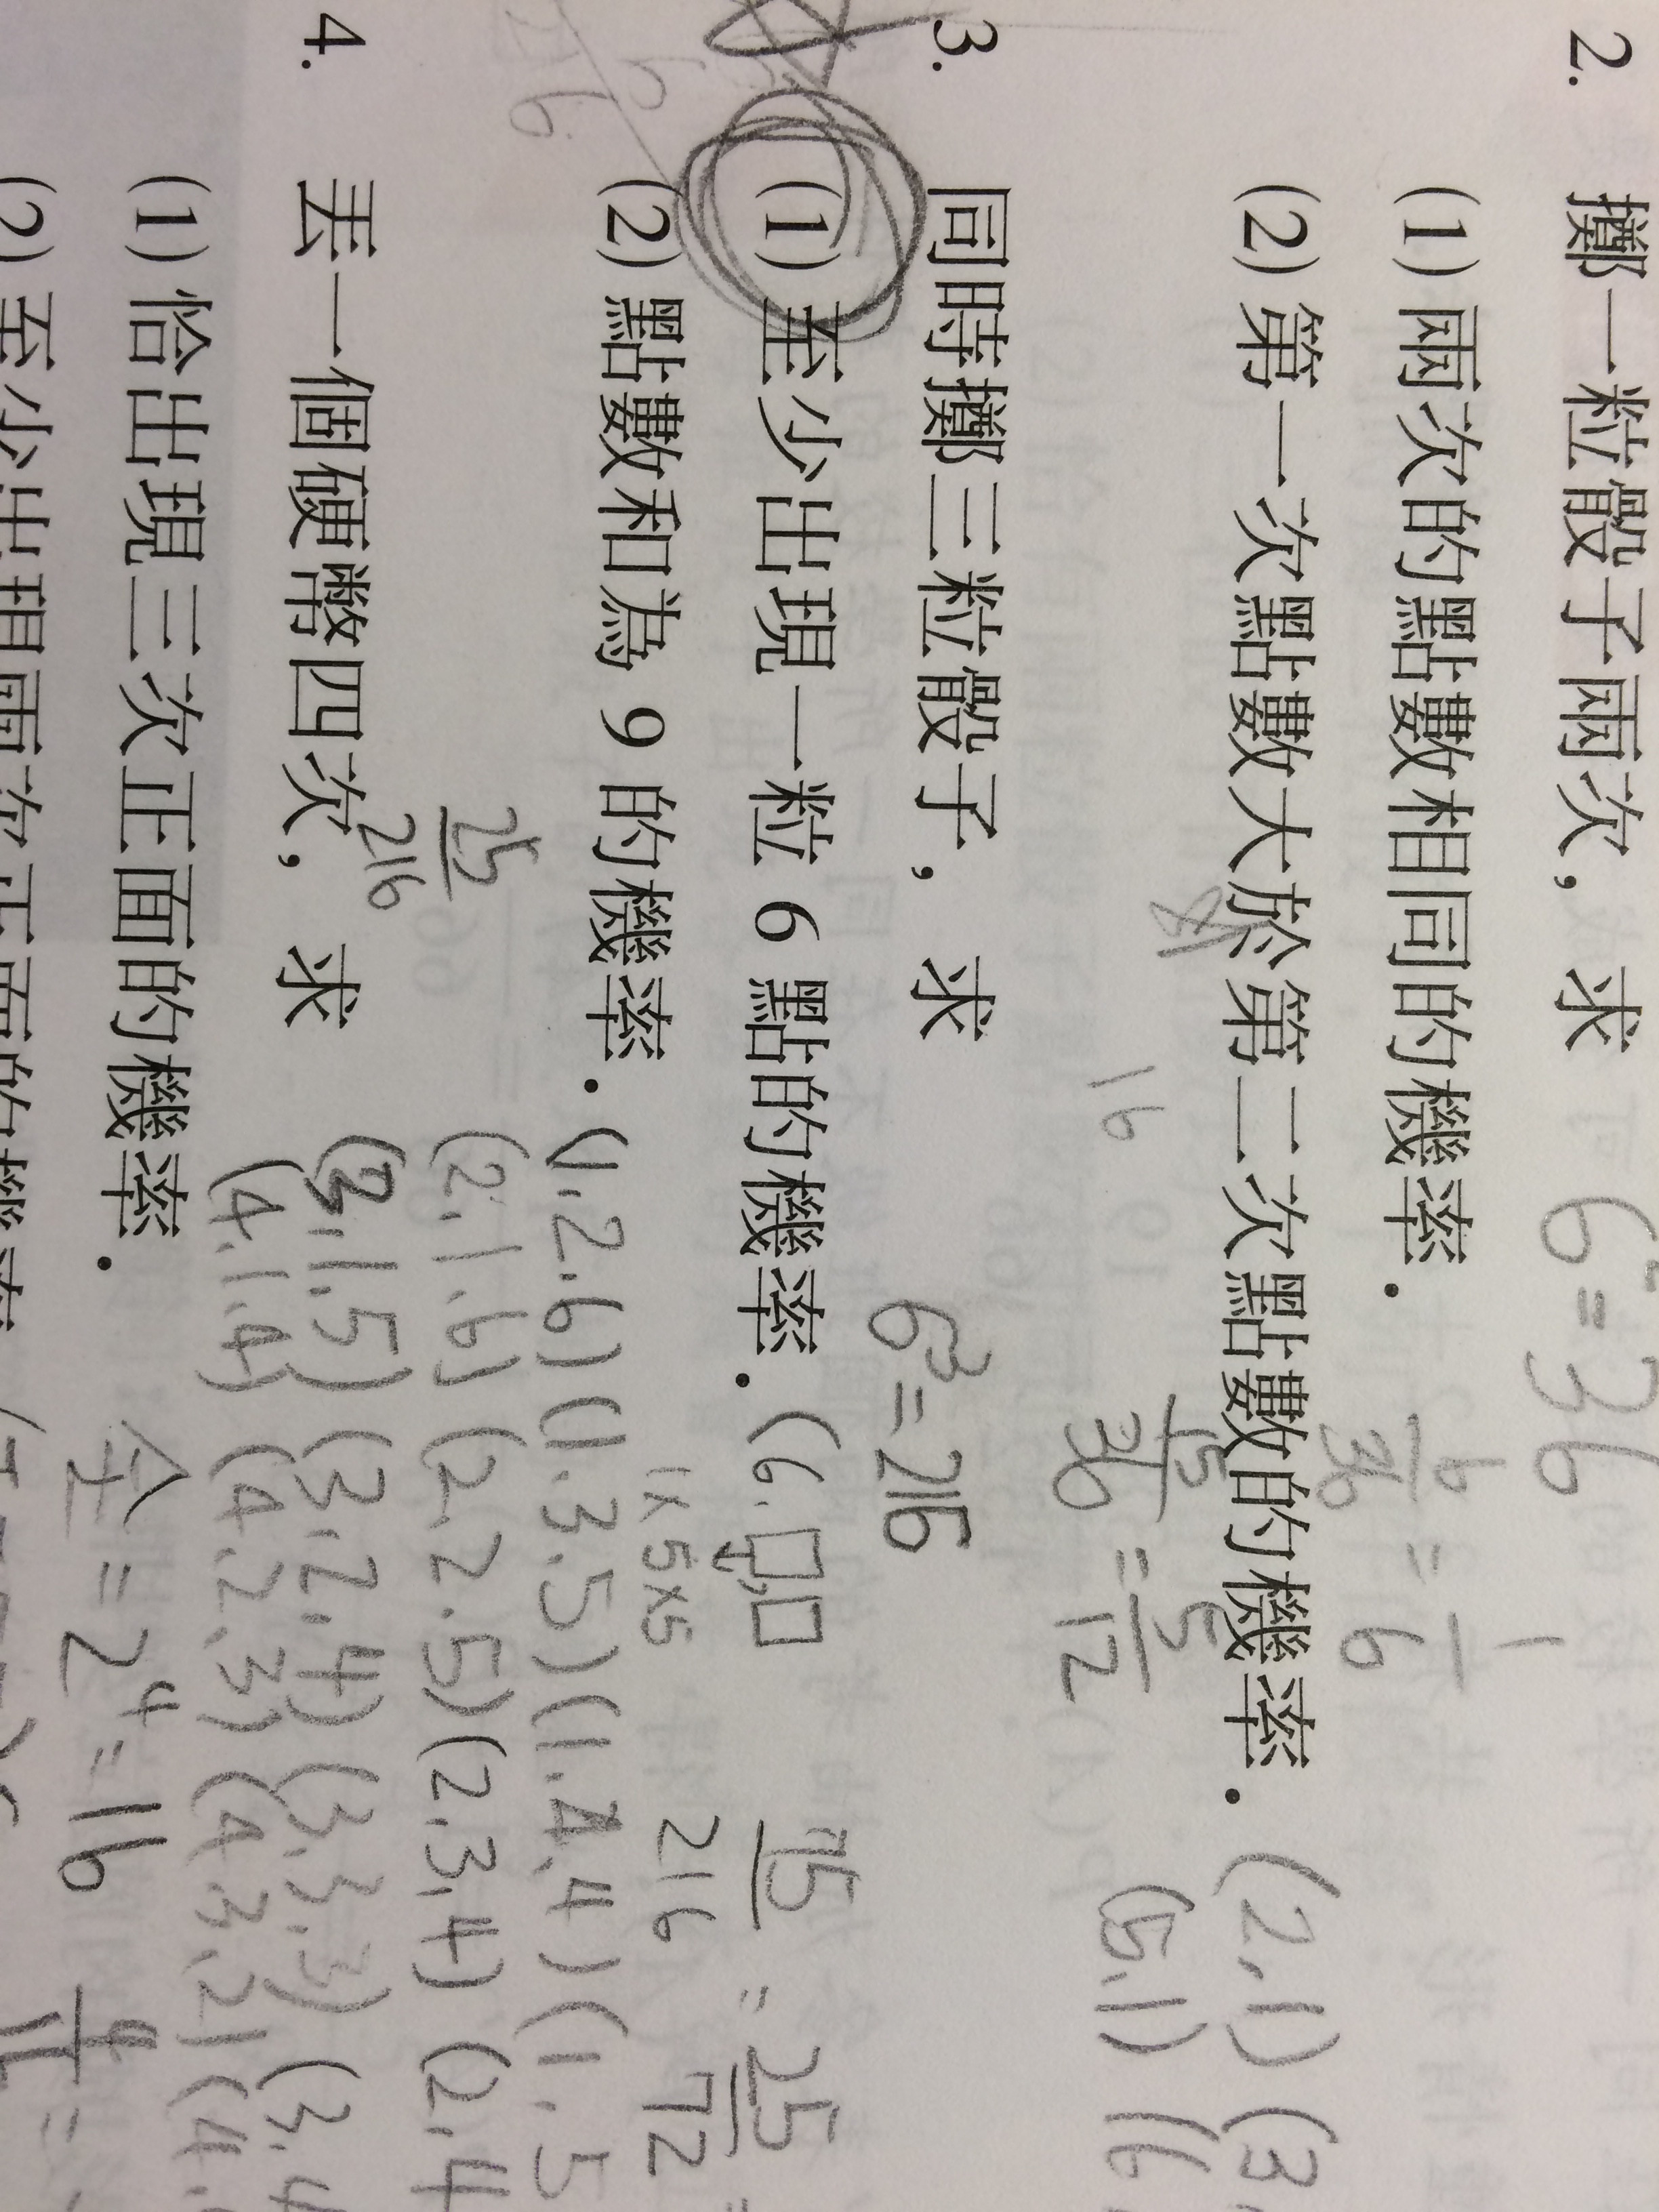 2. 擲一粒骰子兩次，求 6²=36
(1) 兩次的點數相同的機率． 6/36 = 1/6
(2) 第一次點數大於第二次點數的機率． (2.1) (3
16 15/36 = 5/12 (5.1) (6
3. 同時擲三粒骰子，求 6³=216
(1) 至少出現一粒 6 點的機率． (6.□,□) 75/216 = 25/72 =
1×5×5
(2) 點數和為 9 的機率． (1.2.6) (1.3.5) (1.4.4) (1.5
25/216 (2.1.6) (2.2.5) (2.3.4) (2.4
4. 丟一個硬幣四次，求 (3.1.5) (3.2.4) (3.3.3) (3.4
(4.1.4) (4.2.3) (4.3.2) (4.
(1) 恰出現三次正面的機率． 全 = 2⁴=16 4/16 =
(2) 至少出現兩次正面的機率